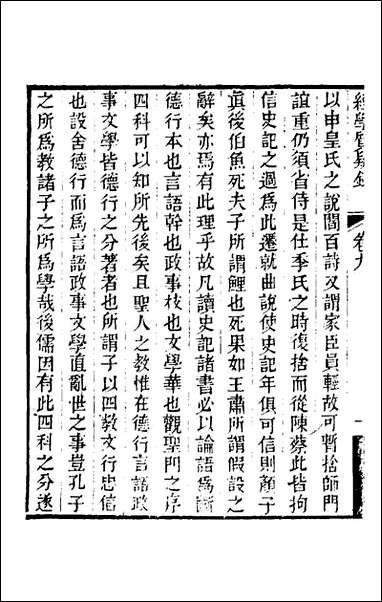 經學質疑錄 卷九 一
以申皇氏之說閻百詩又謂家臣員輕故可暫捨師門
誼重仍須省侍是仕季氏之時復捨而從陳蔡此皆拘
信史記之過爲此遷就曲說使史記年俱可信則顏子
眞後伯魚死夫子所謂鯉也死果如王肅所謂假設之
辭矣亦焉有此理乎故凡讀史記諸書必以論語爲斷
德行本也言語幹也政事枝也文學華也觀聖門之序
四科可以知所先後矣且聖人之教惟在德行言語政
事文學皆德行之分著者也所謂子以四教文行忠信
也設舍德行而爲言語政事文學直亂世之事豈孔子
之所爲教諸子之所爲學哉後儒因有此四科之分遂